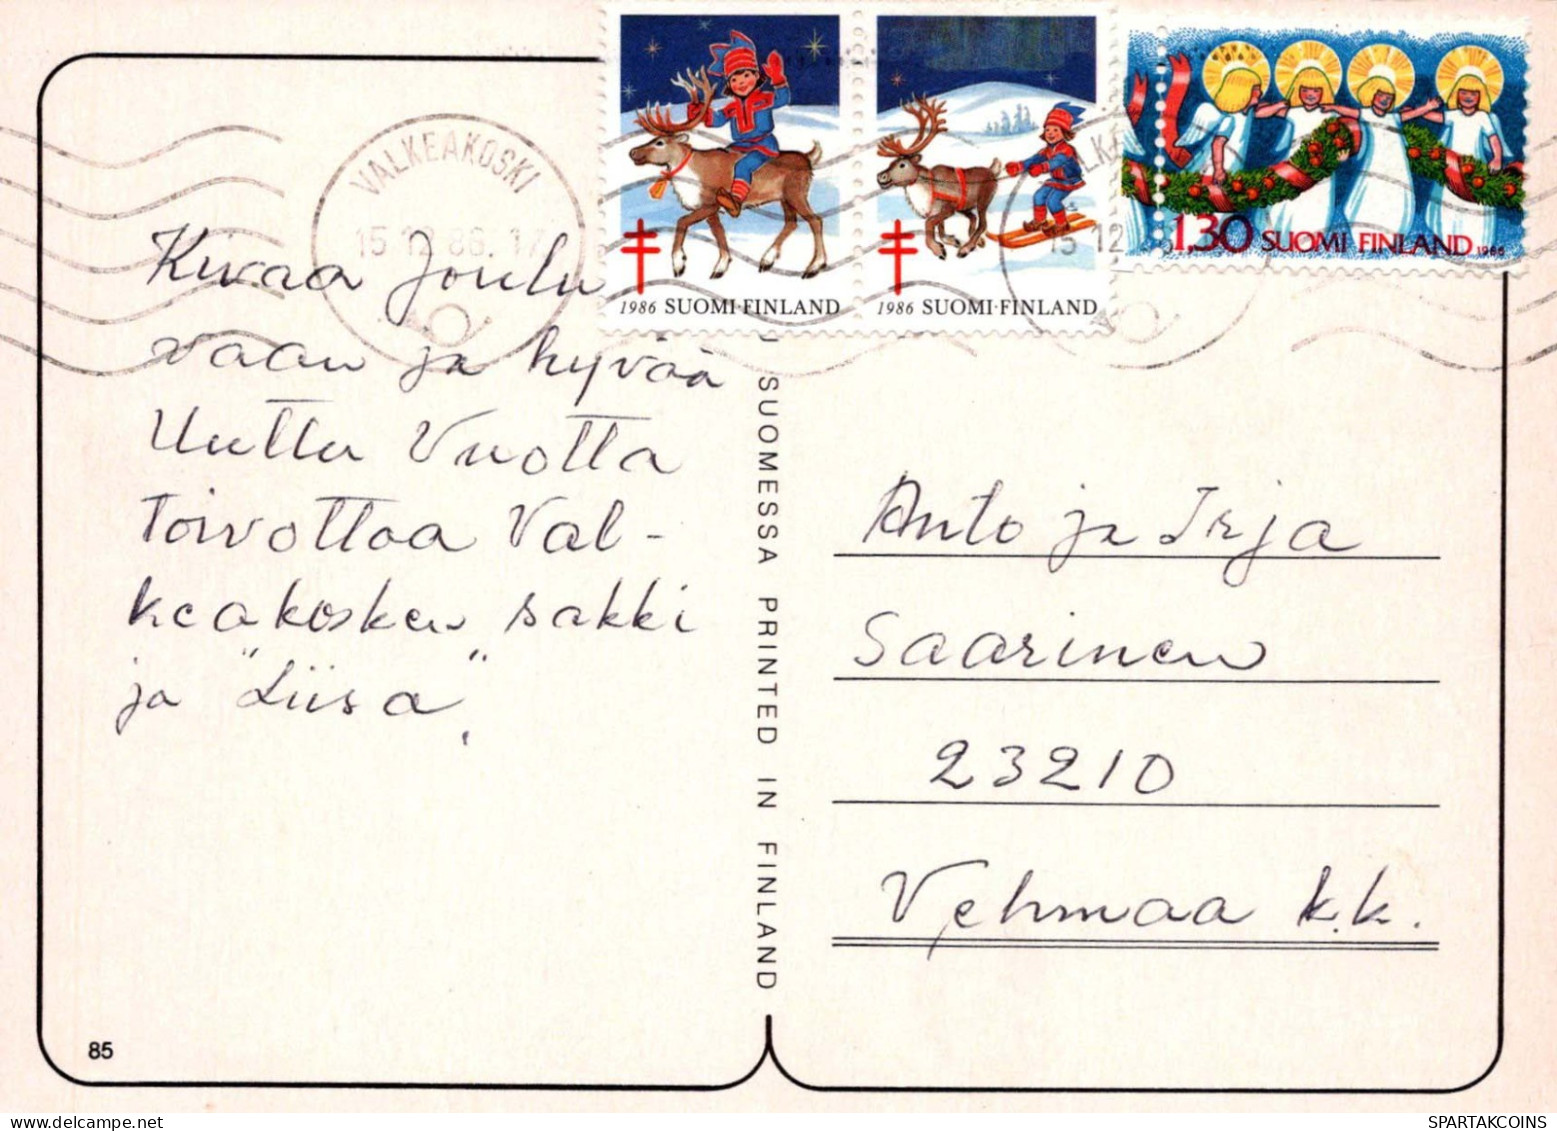 VALKEAKOSKI
15.12.86.17
1986 SUOMI·FINLAND
1986 SUOMI·FINLAND
15 12
1.30 SUOMI FINLAND 1986
Kivaa Joulu
vaan ja hyvää
Uutta Vuotta
toivottaa Val-
keakosken sakki
ja "Liisa"
SUOMESSA PRINTED IN FINLAND
Anto ja Irja
Saarinen
23210
Vehmaa k.k.
85
SPARTAKCOINS